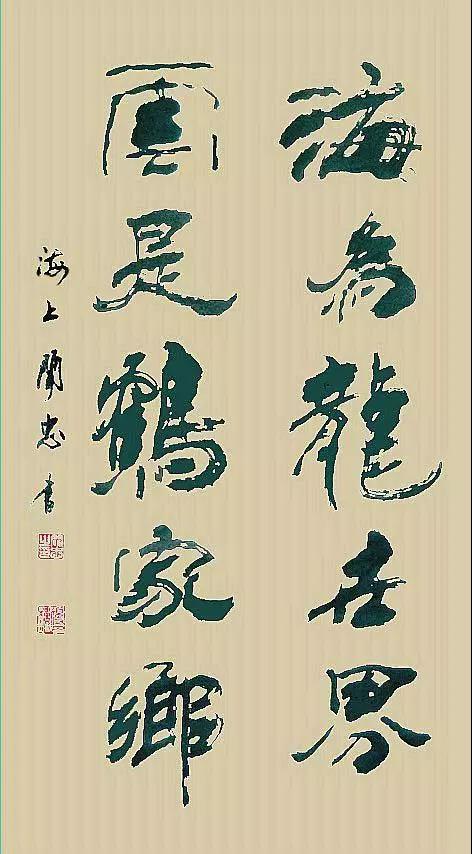 海為龍世界
雲是鶴家鄉
海上忠書